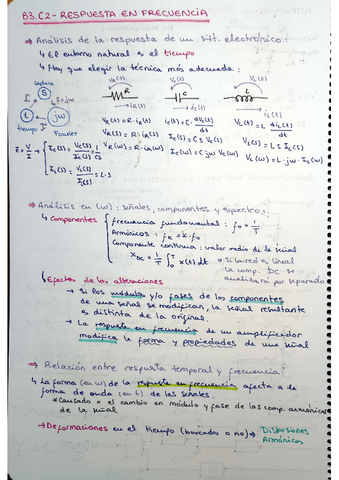 B3.C2- RESPUESTA EN FRECUENCIA
⇒ Análisis de la respuesta de un sist. electrónico:
↳ El entorno natural es el tiempo
↳ Hay que elegir la técnica más adecuada:
Laplace
S
L
S=jω
t
jω
tiempo F Fourier
VR(t) R iR(t)
Vc(t) C ic(t)
VL(t) L
VR(t) = R·iR(t) ic(t)=C·dVc(t)/dt VL(t)=L diL(t)/dt
VR(s) = R·iR(s) Ic(s)=C s Vc(s) VL(s)=L s IL(s)
VR(ω)=R·iR(ω) Ic(ω)=C jω Vc(ω) VL(ω)=L·jω·IL(ω)
Z=V/I
Zc(s)=Vc(s)/Ic(s)=1/CS
ZL(s)=VL(s)/IL(s)=L·S
⇒ Análisis en (ω): señales, componentes y espectro:
↳ Componentes
frecuencia fundamental: f0=1/T
Armónicos: fk=k·f0
Componente continua: valor medio de la señal
XDC=1/T ∫0T x(t) dt
* si la red es lineal
la comp. DC se
analizará por separado
↳ Efectos de las alteraciones
→ Si los módulos y/o fases de los componentes
de una señal se modifican, la señal resultante
es distinta de la original.
→ La respuesta en frecuencia de un amplificador
modifica la forma y propiedades de una señal
⇒ Relación entre respuesta temporal y frecuencia:
↳ La forma (en ω) de la respuesta en frecuencia afecta a la
forma de onda (en t) de las señales.
*Causado x el cambio en módulo y fase de las comp. armónicas
de la señal
→ Deformaciones en el tiempo (buscadas o no) → Distorsiones
Armónicos